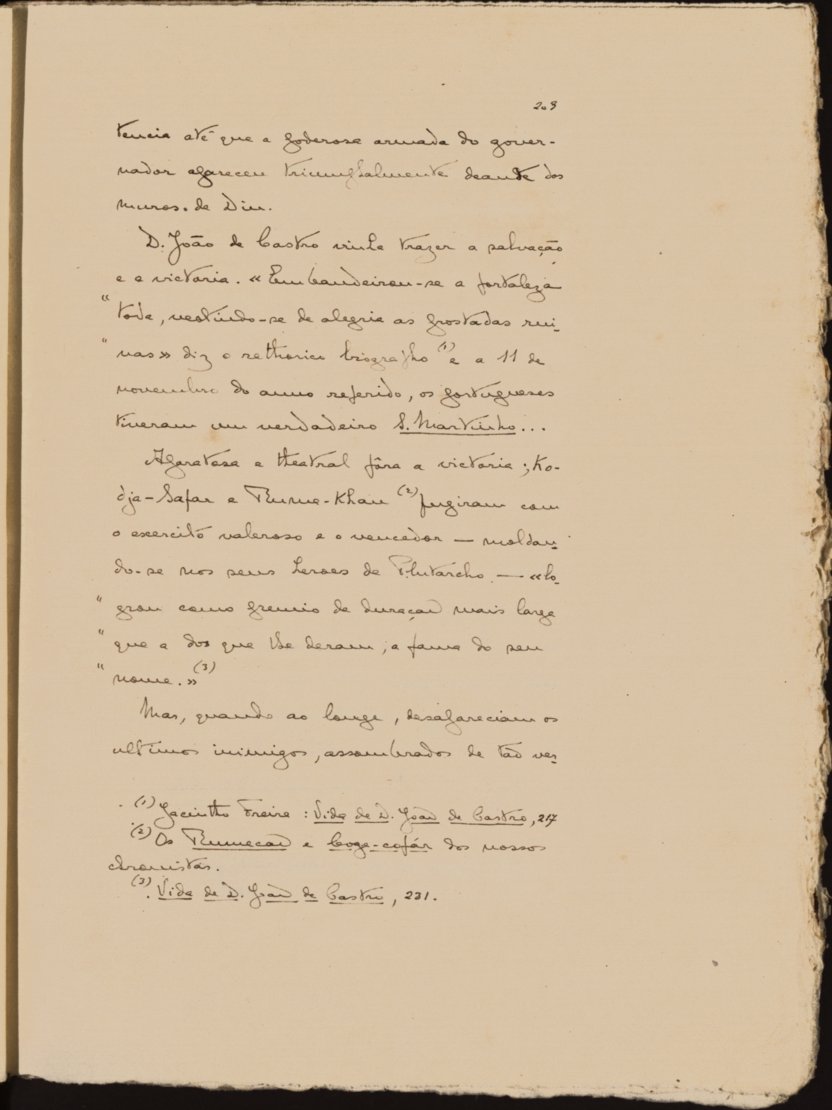 209
tencia até que a poderosa armada do gover-
nador apareceu triumphalmente deante dos
muros de Diu.
D. João de Castro vinha trazer a salvação
e a victoria. « Embandeirou-se a fortaleza
" toda, vestindo-se de alegria as prostadas rui-
" nas » diz o rethorico biographo (1) e a 11 de
novembro do anno referido, os portugueses
tiveram um verdadeiro S. Martinho...
Aparatosa e theatral fôra a victoria; Ko-
dja-Safar e Rume-Khan (2) fugiram com
o exercito valeroso e o vencedor — moldan-
do-se nos seus heroes de Plutarcho — «lo-
" grou como premio de duração mais larga
" que a dos que lhe deram, a fama do seu
" nome.» (3)
Mas, quando ao longe, desapareciam os
ultimos inimigos, assombrados de tão ver-
(1) Jacintho Freire: Vida de D. João de Castro, 217
(2) Os Rumecão e Coge-çofár dos nossos
chronistas.
(3). Vida de D. João de Castro, 231.